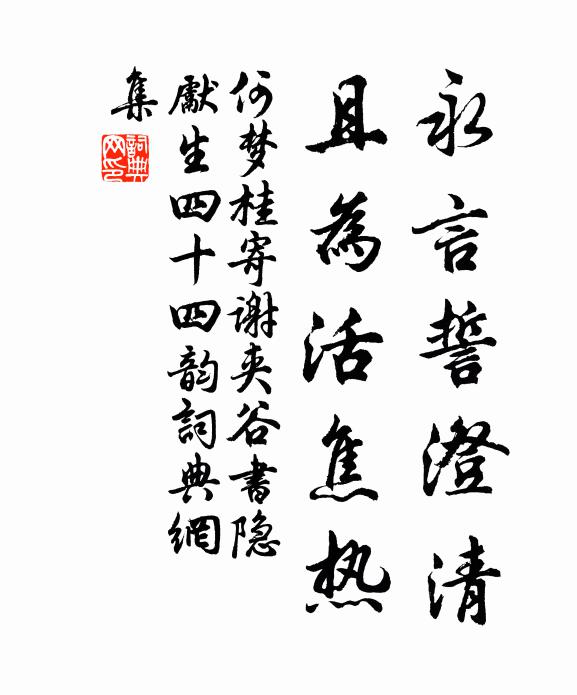 永言誓澄清
且為活焦热
何梦桂寄谢夹谷书隐
獻生四十四韵詞典網
集
詞典網印